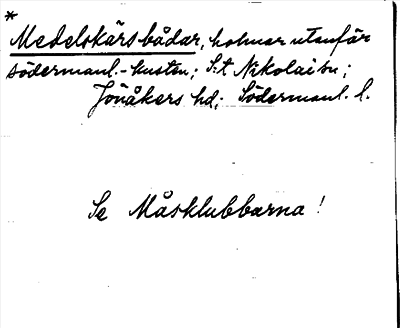 *
Medelskärsbådar, holmar utanför
södermanl.-kusten; S:t Nikolai sn;
Jönåkers hd; Södermanl. l.
Se Måsklubbarna!